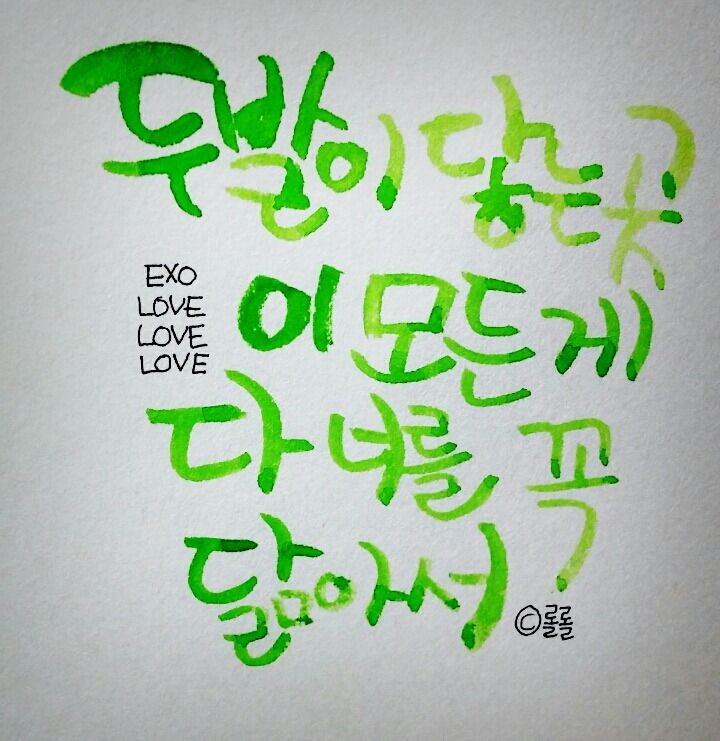 두발이 닿는곳
EXO
LOVE
LOVE
LOVE
이 모든게
다 너를 꼭
닮아서
©롤롤